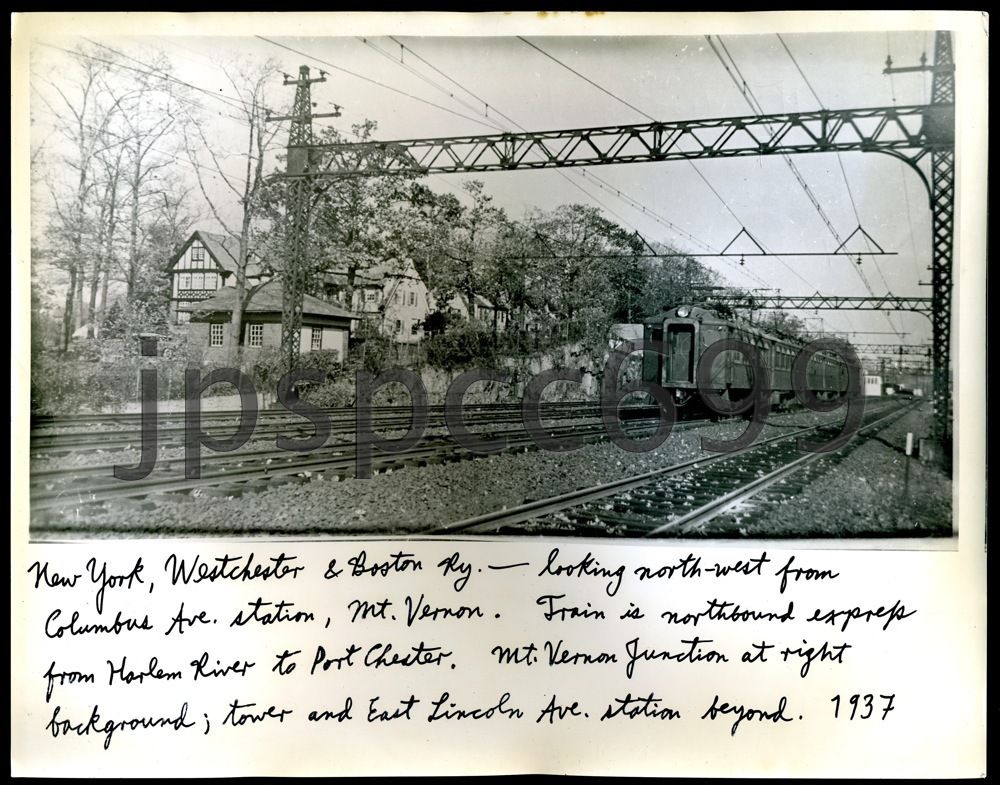 jpspcc699
New York, Westchester & Boston Ry. — looking north-west from
Columbus Ave. station, Mt. Vernon. Train is northbound express
from Harlem River to Port Chester. Mt. Vernon Junction at right
background; tower and East Lincoln Ave. station beyond. 1937